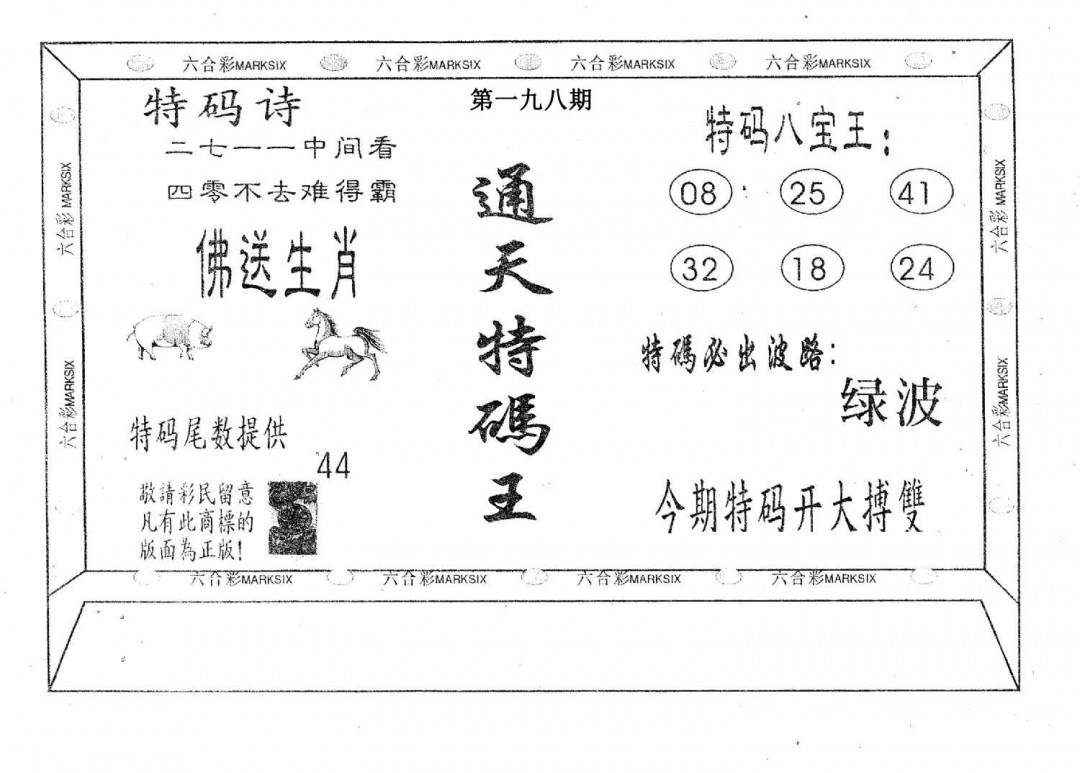 六合彩MARKSIX 六合彩MARKSIX 六合彩MARKSIX 六合彩MARKSIX
六合彩 MARKSIX
六合彩MARKSIX
特码诗
二七一一中间看
四零不去难得霸
佛送生肖
特码尾数提供
44
敬請彩民留意
凡有此商標的
版面為正版!
第一九八期
通天特碼王
特码八宝王:
08 25 41
32 18 24
特碼必出波路:
绿波
今期特码开大搏雙
六合彩 MARKSIX
六合彩MARKSIX
六合彩MARKSIX 六合彩MARKSIX 六合彩MARKSIX 六合彩MARKSIX